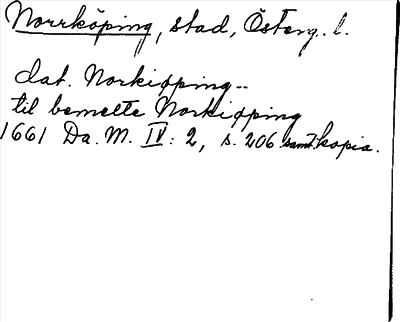 Norrköping, stad, Österg. l.
dat. Norkiøping--
til bemelte Norkiøping
1661 Da. M. IV: 2, s. 206 samt. kopia.